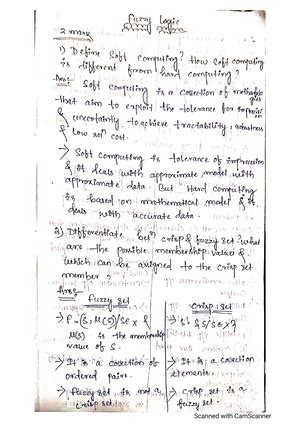 Fuzzy Logic
2 mark
1) Define Soft computing? How soft computing
is different from hard computing?
Ans:- Soft computing is a collection of methodolo
gies
that aim to exploit the tolerance for imprecision
& uncertainty to achieve tractability, robustness
& low soln cost.
→ Soft computing is tolerance of imprecision
& it deals with approximate model with
approximate data. But Hard computing
is based on mathematical model & it
deals with accurate data.
2) Differentiate betn crisp & fuzzy set? what
are the possible membership value &
which can be assigned to the crisp set
member?
Ans:-
Fuzzy set
crisp set
→ F = (S, μ(S)/S∈X &
→ S = {S/S∈X}
μ(S) is the membership
value of S.
→ It is a collection of
→ It is a collection
ordered pairs.
elements.
→ Fuzzy set is not a
→ crisp set is a
crisp set.
fuzzy set.
Scanned with CamScanner